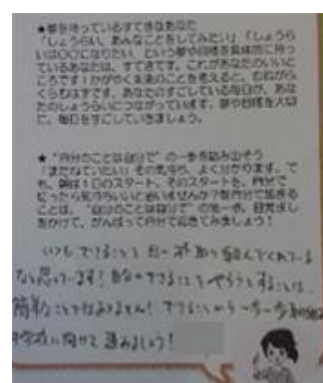 ★夢を持っているすてきなあなた
「しょうらい、あんなことをしてみたい」「しょうら
いは○○になりたい」という夢や目標を具体的に持っ
ているあなたは、すてきです。これがあなたのいいと
ころです！かがやく未来のことを考えると、むねがわ
くらむはずです。あなたのすごしている毎日が、あな
たのしょうらいにつながっています。夢や目標を大切
に、毎日をすごしていきましょう。
★“自分のことは自分で”の一歩を踏み出そう
「まだねていたい」その気持ち、よく分かります。で
も、朝は１日のスタート。そのスタートを、自分で
切ったら気持ちいいと思いませんか？毎朝自分で起きる
ことは、“自分のことは自分で”の第一歩。目覚まし
をかけて、がんばって自分で起きてみましょう！
いつもできることを日々
なと思っています！自分のできることをやろうとすることは、
簡単なことではありません！できることから一歩一歩
中学校に向けて進みましょう！